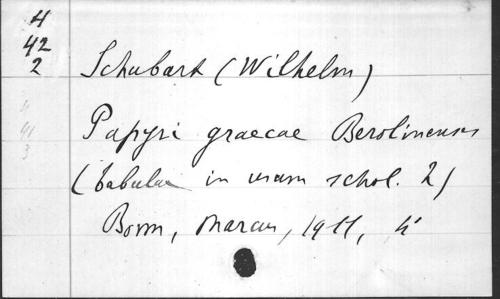 4
42
2
Schubart (Wilhelm)
4
41
3
Papyri graecae Berolinenses
(tabulae in usum schol. 2)
Bonn, Marcus, 1911, 4°